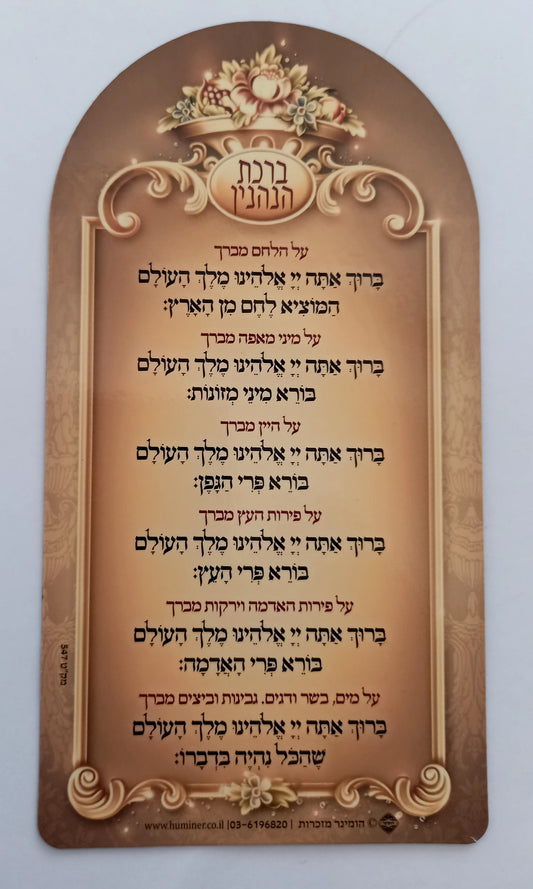 ברכת
הנהנין
על הלחם מברך
בָּרוּךְ אַתָּה יְיָ אֱלֹהֵינוּ מֶלֶךְ הָעוֹלָם
הַמּוֹצִיא לֶחֶם מִן הָאָרֶץ:
על מיני מאפה מברך
בָּרוּךְ אַתָּה יְיָ אֱלֹהֵינוּ מֶלֶךְ הָעוֹלָם
בּוֹרֵא מִינֵי מְזוֹנוֹת:
על היין מברך
בָּרוּךְ אַתָּה יְיָ אֱלֹהֵינוּ מֶלֶךְ הָעוֹלָם
בּוֹרֵא פְּרִי הַגָּפֶן:
על פירות העץ מברך
בָּרוּךְ אַתָּה יְיָ אֱלֹהֵינוּ מֶלֶךְ הָעוֹלָם
בּוֹרֵא פְּרִי הָעֵץ:
על פירות האדמה וירקות מברך
בָּרוּךְ אַתָּה יְיָ אֱלֹהֵינוּ מֶלֶךְ הָעוֹלָם
בּוֹרֵא פְּרִי הָאֲדָמָה:
על מים, בשר ודגים. גבינות וביצים מברך
בָּרוּךְ אַתָּה יְיָ אֱלֹהֵינוּ מֶלֶךְ הָעוֹלָם
שֶׁהַכֹּל נִהְיָה בִּדְבָרוֹ:
© הומינר מזכרות | 03-6196820| www.huminer.co.il
מק"ט 547